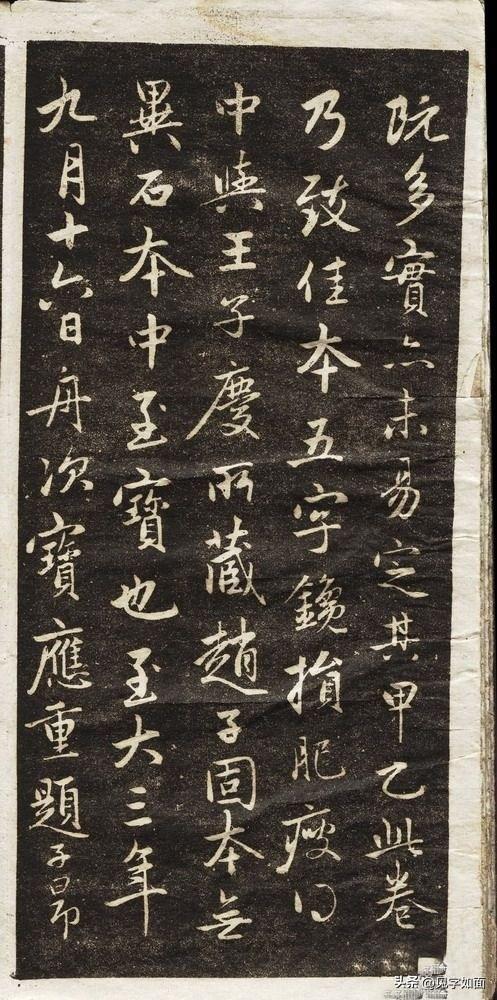 阮多實亦未易定其甲乙此卷
乃致佳本五字鑱損肥瘦得
中與王子慶所藏趙子固本無
異石本中至寶也至大三年
九月十六日舟次寶應重題子昂
头条@见字如面